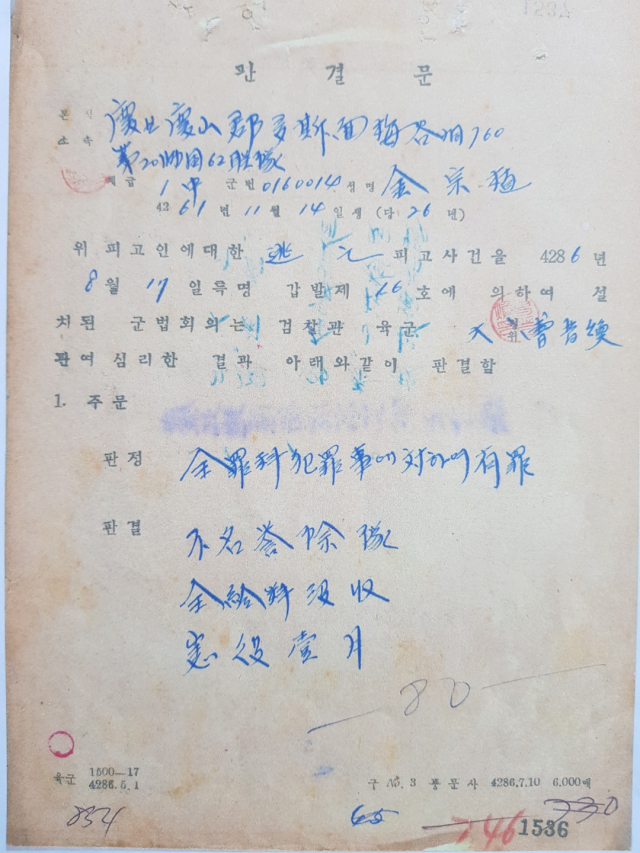 1232
판 결 문
본 적 慶北慶山郡多斯面梅谷洞760
소 속 第20師団62聯隊
계급 1中 군번 0160014 성명 金宗
42 61 년 11 월 14 일생 (당 26 년)
위 피고인에대한 逃亡 피고사건을 4286년
8월 17 일륙명 갑발제 66 호에 의하여 설
치된 군법회의는 검찰관 육군 大위 曹
관여 심리한 결과 아래와같이 판결함
1. 주문
판정 全罪科犯罪事에対하여有罪
판결 不名誉除隊
全給料没収
懲役壹月
80
육군 1500—17
4286.5.1
구 No. 3 풍문사 4286.7.10 6,000매
834
65
746
1536